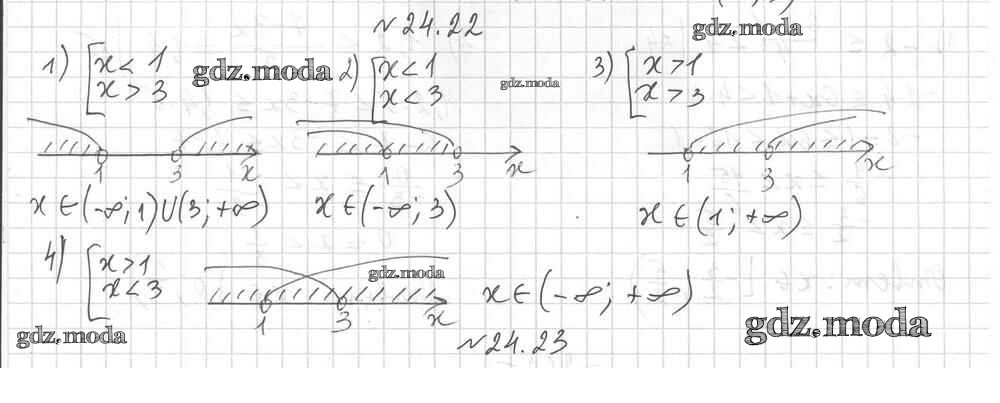 №24.22
gdz.moda
1) [x < 1
x > 3
gdz.moda
2) [x < 1
x < 3
gdz.moda
3) [x > 1
x > 3
1 3 x
1 3 x
1 3 x
x ∈ (-∞; 1) ∪ (3; +∞)
x ∈ (-∞; 3)
x ∈ (1; +∞)
4) [x > 1
x < 3
gdz.moda
1 3 x
x ∈ (-∞; +∞)
gdz.moda
gdz.moda
№24.23